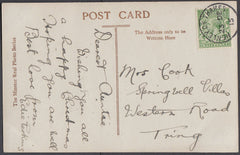 POST CARD
The Address only to be
Written Here
The Milton Real Photo Series
Dearest Auntie
Wishing you all
a happy Christmas
Hoping you are well
Best love from
Mrs Cook
Springwell Villas
Western Road
Tring